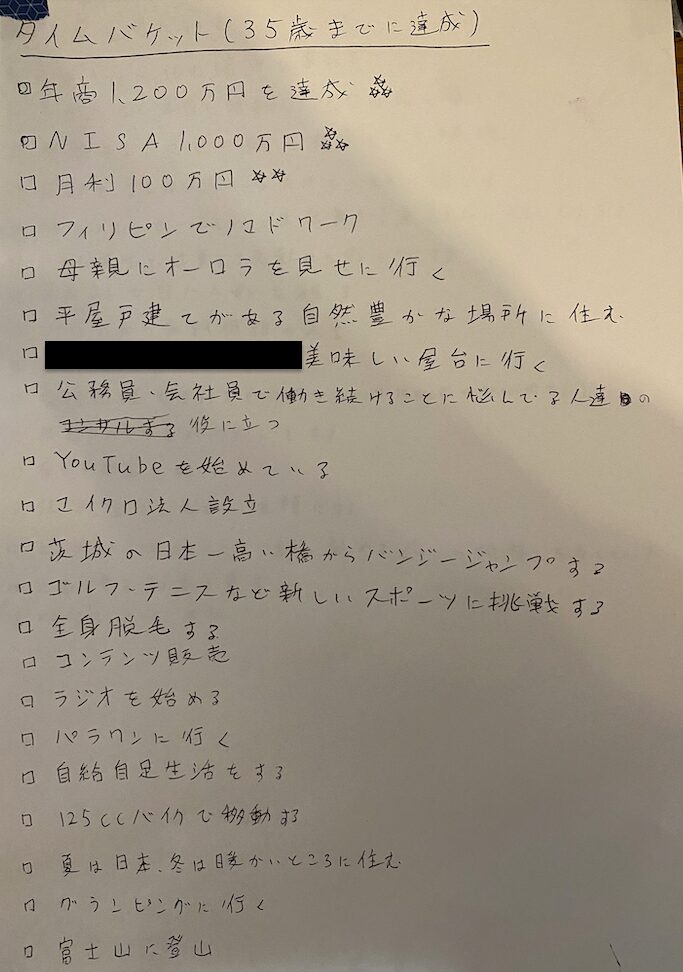 タイムバケット(35歳までに達成)
□ 年商1,200万円を達成 ☆☆☆
□ NISA 1,000万円 ☆☆☆
□ 月利100万円 ☆☆
□ フィリピンでノマドワーク
□ 母親にオーロラを見せに行く
□ 平屋戸建てがある自然豊かな場所に住む
□ 美味しい屋台に行く
□ 公務員、会社員で働き続けることに悩んでる人達の
コンサルする 役に立つ
□ YouTubeを始めている
□ マイクロ法人設立
□ 茨城の日本一高い橋からバンジージャンプする
□ ゴルフ・テニスなど新しいスポーツに挑戦する
□ 全身脱毛する
□ コンテンツ販売
□ ラジオを始める
□ パラワンに行く
□ 自給自足生活をする
□ 125ccバイクで移動する
□ 夏は日本、冬は暖かいところに住む
□ グランピングに行く
□ 富士山に登山